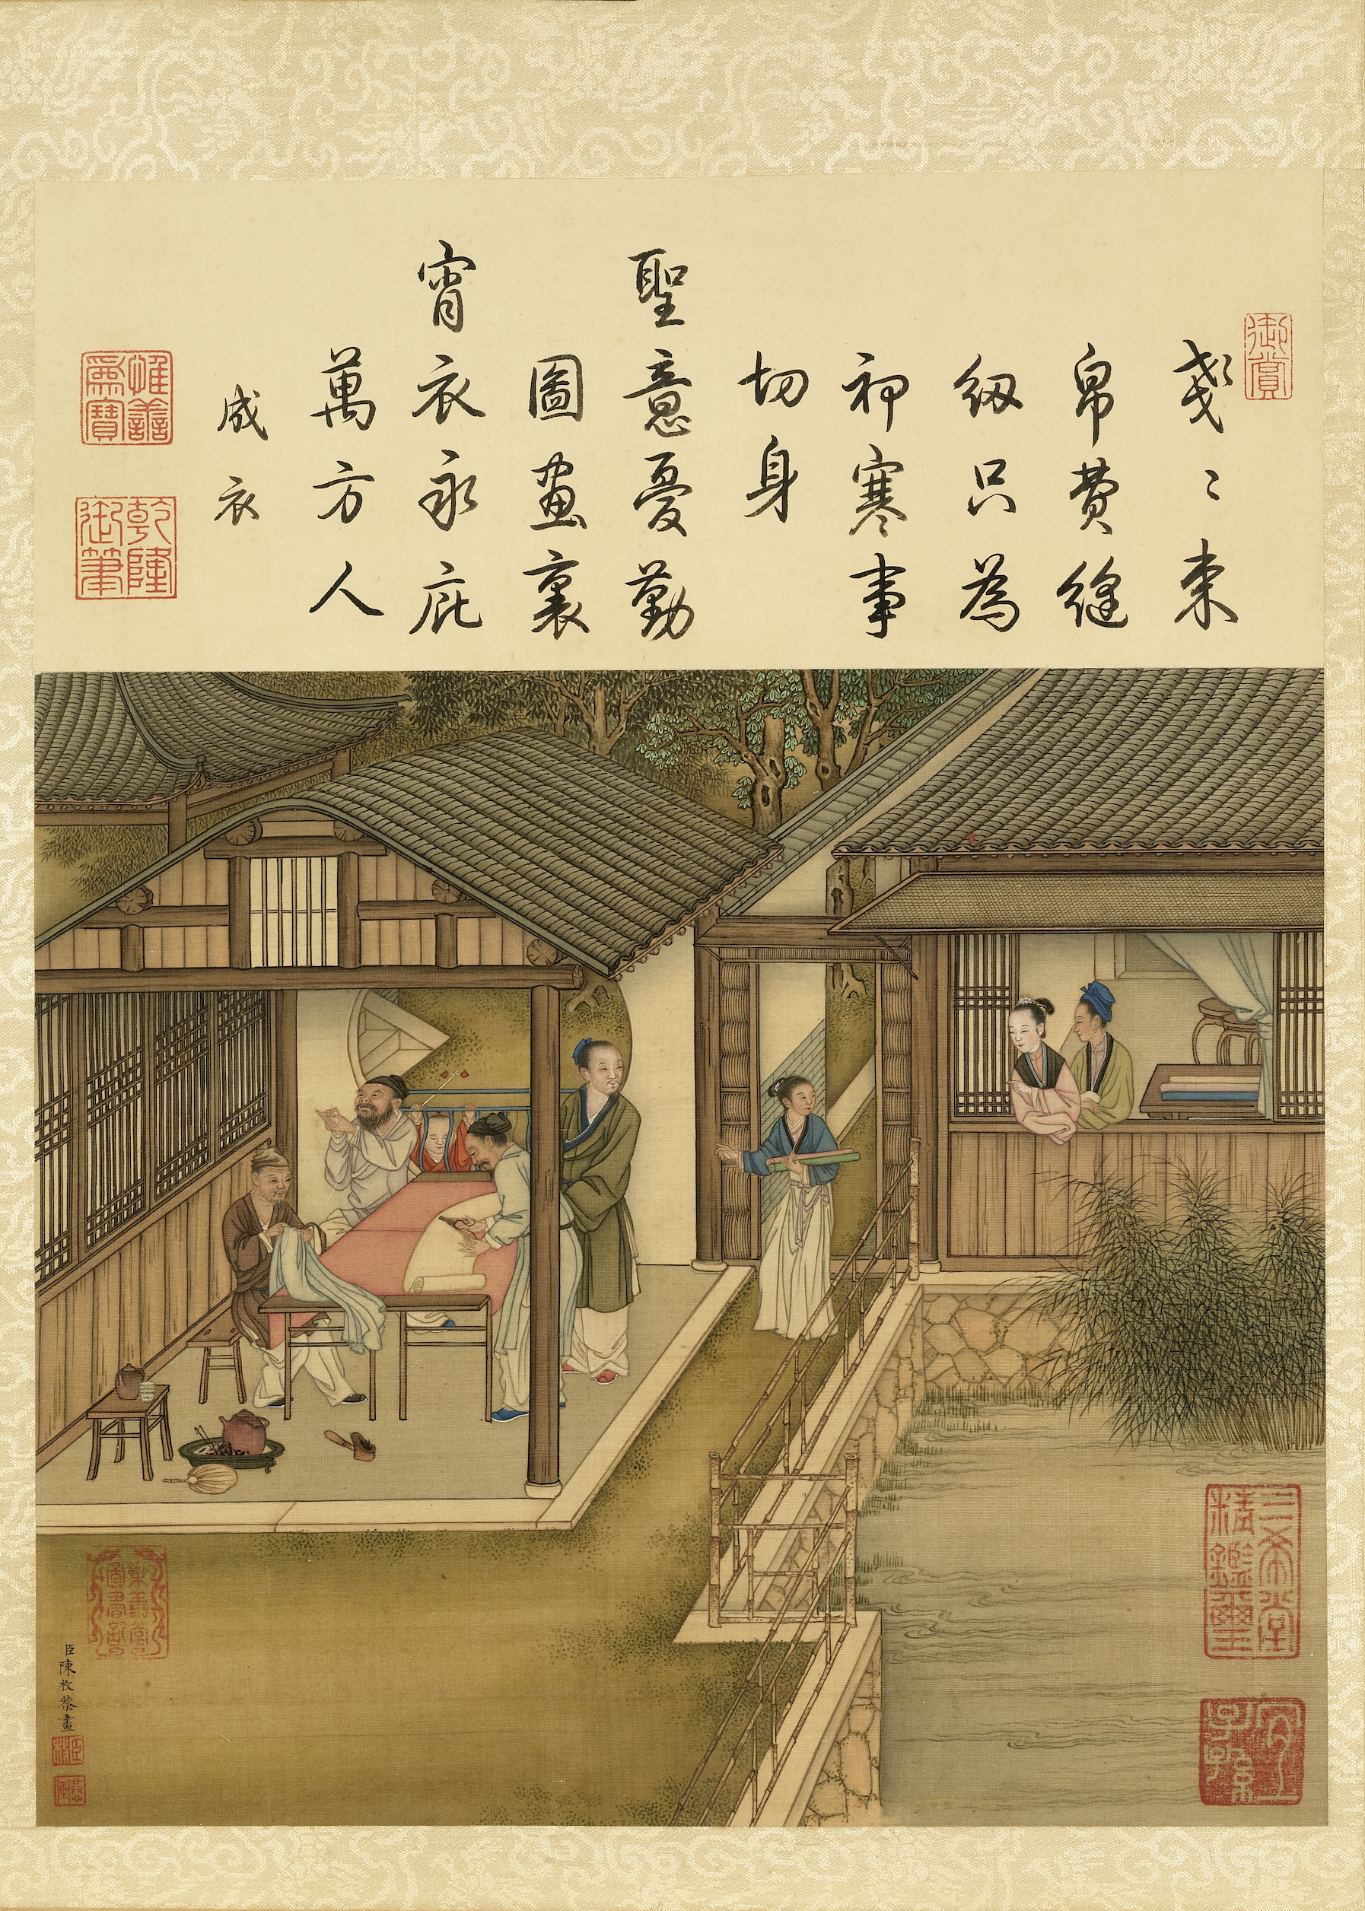 御賞
戔〻束
帛費縫
紉只為
御寒事
切身
聖意憂勤
圖畫裏
宵衣永庇
萬方人
成衣
惟善為寶
乾隆御筆
三希堂精鑑璽
宜子孫
樂善堂圖書記
臣陳枚恭畫
臣枚